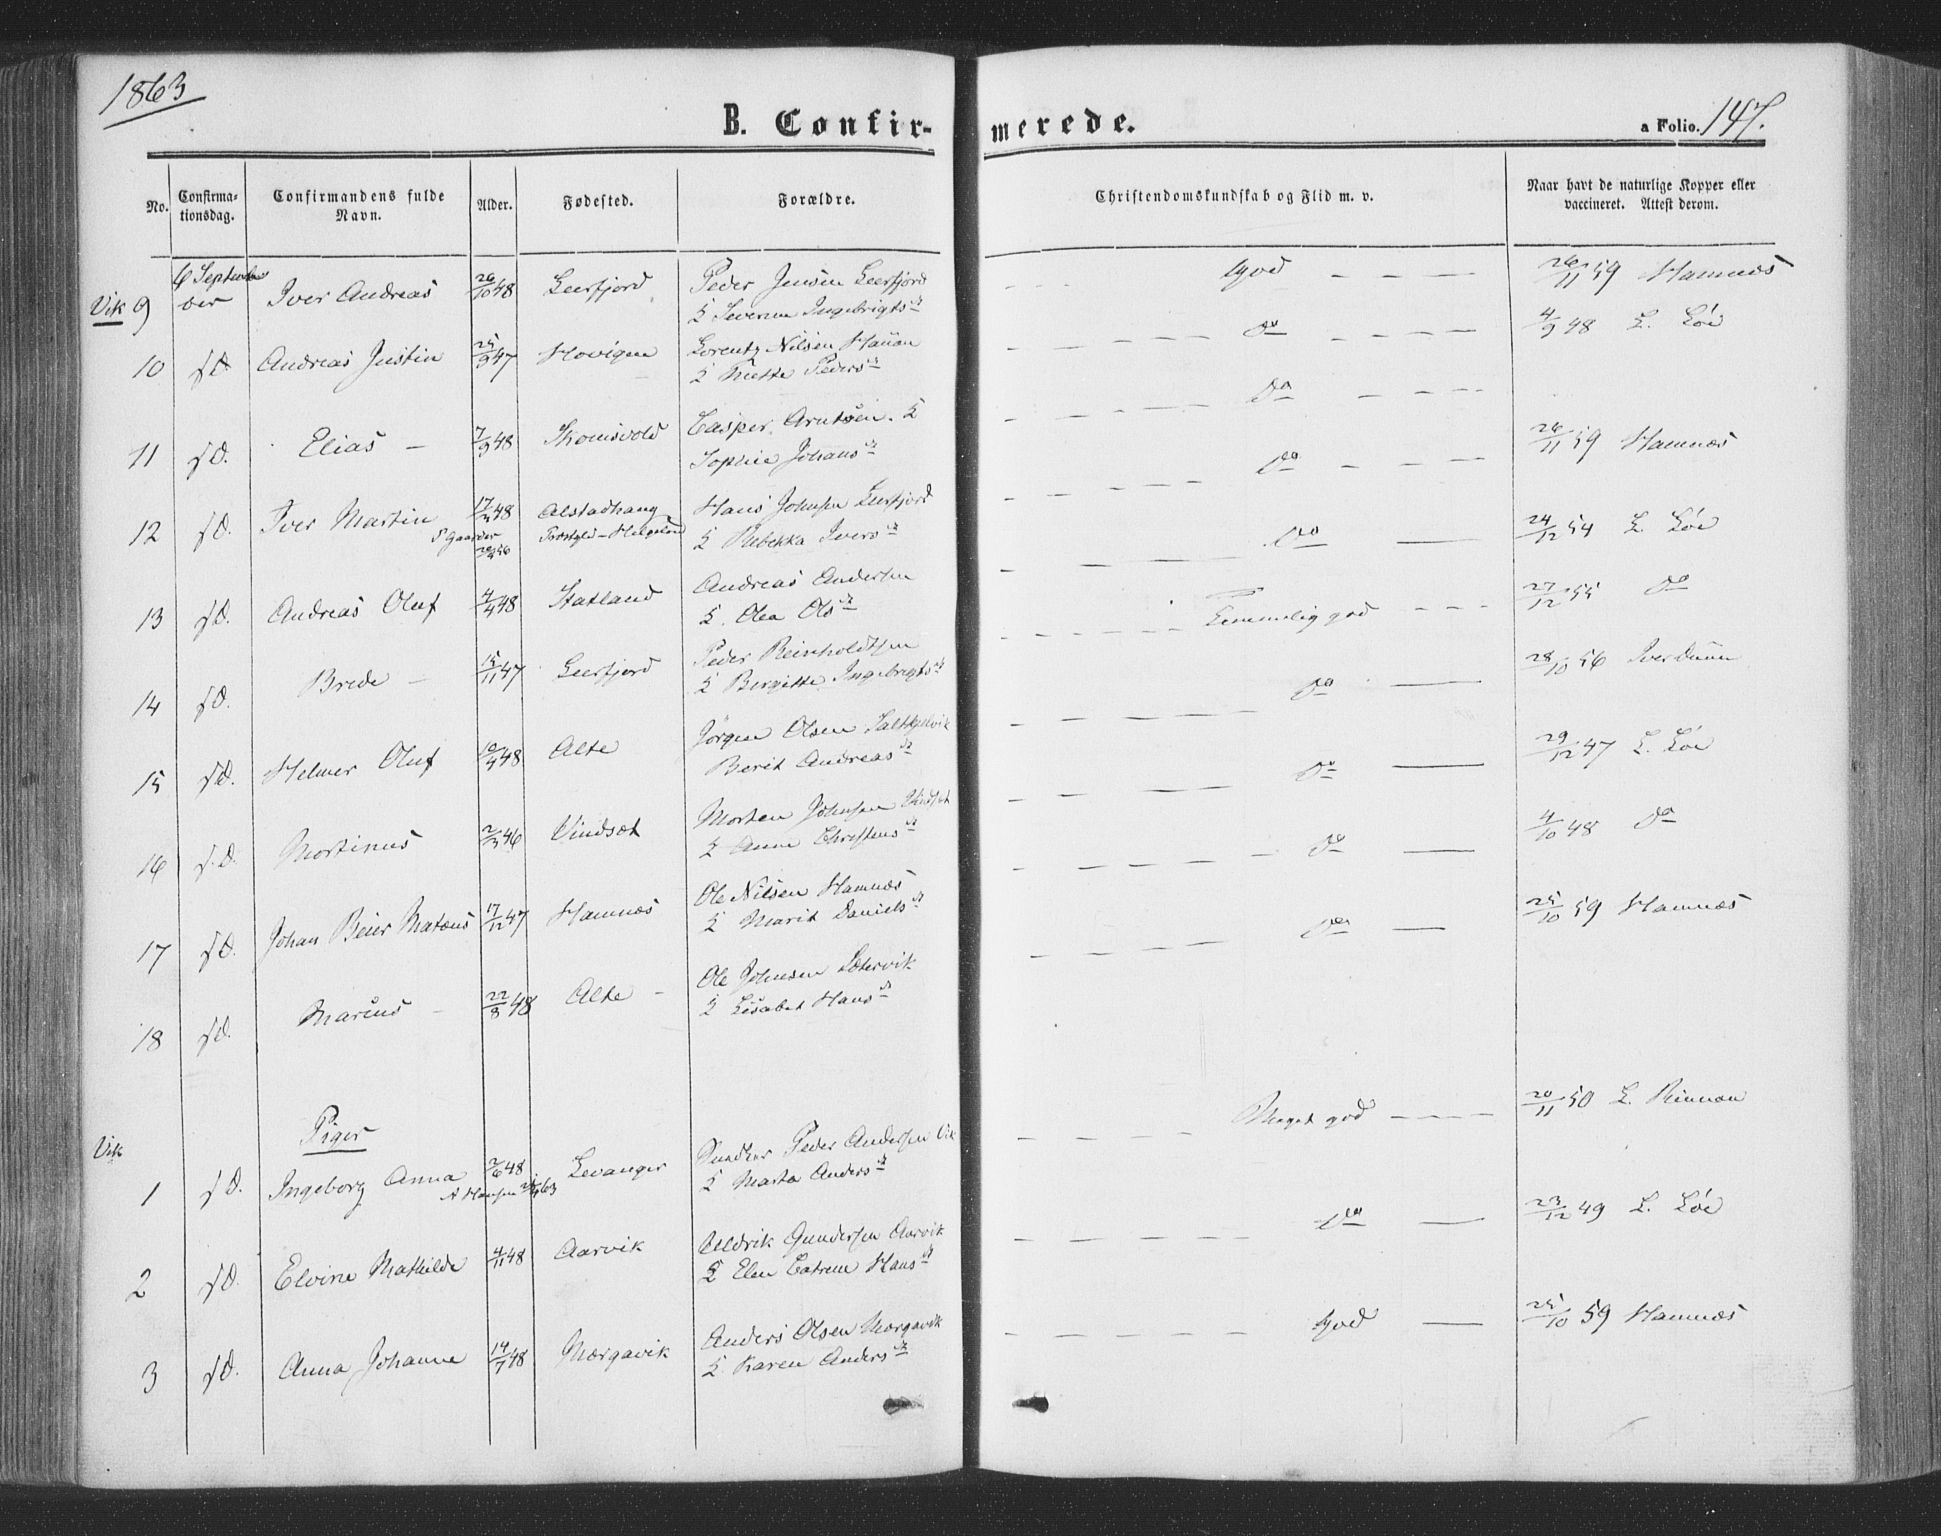 1863
B. Confir-
merede.
a Folio. 147.
No.
Confirma-
tionsdag.
Confirmandens fulde
Navn.
Alder.
Fødested.
Forældre.
Christendomskundskab og Flid m. v.
Naar havt de naturlige Kopper eller
vaccineret. Attest derom.
Vik 9 6 Septem ber Iver Andreas 26/10 48 Leerfjord Peder Jensen Leerfjord God 26/11 59 Hamnæs
& Severine Ingebrigtsd
10 sd. Andreas Justin 25/9 47 Hovigen Lorentz Nilsen Hauan do 4/9 48 L. Löe
& Mette Pedersd
11 sd. Elias 7/9 48 Skomsvold Casper Arntsen & do
Sophie Johansd
12 sd. Iver Martin 48 Alstadhaug Hans Johnsen Leerfjord do 26/11 59 Hamnæs
S. Gaarder Præstgld Helgeland & Rebekka Iversd
13 sd. Andreas Oluf 4/4 48 Statland Andreas Andersen do 24/12 54 L. Löe
& Olea Olsd
14 sd. Brede 15/11 47 Leerfjord Peder Reinholdtsen Temmelig god 27/12 55 do
& Birgitte Ingebrigtsd
15 sd. Helmer Oluf 10/4 48 Alte Jörgen Olsen Saltkjelvik do 28/10 56 Iver Duun
Berit Andreasd
16 sd. Mortinus 2/3 46 Vindsæt Morten Johnsen Vindset do 29/12 47 L. Löe
& Anne Christensd
17 sd. Johan Beier Matæus 17/12 47 Hamnæs Ole Nilsen Hamnæs do 4/10 48 do
& Marit Danielsd
18 sd. Marius 22/8 48 Alte Ole Johnsen Sætervik do 25/10 59 Hamnæs
& Lisabet Hansd
Piger
Vik
1 sd. Ingeborg Anna 2/6 48 Levanger Peder Andersen Vik Meget god 20/11 50 L. Rinnan
A Hansen 63 & Marta Andersd
2 sd. Elvine Mathilde 4/11 48 Aarvik Uldrik Gundersen Aarvik do 23/12 49 L. Löe
& Elen Catrine Hansd
3 sd. Anna Johanne 14/7 48 Morgavik Anders Olsen Morgavik God 25/10 59 Hamnæs
& Karen Andersd